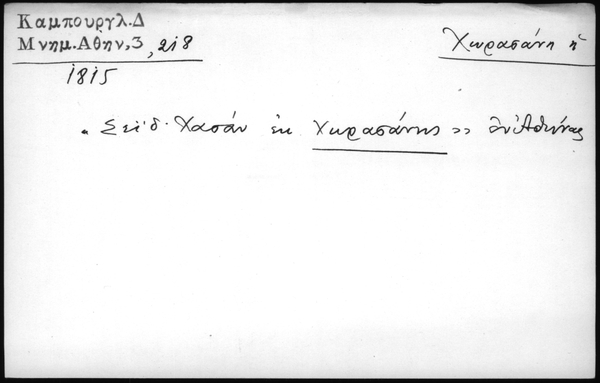 Καμπουργλ.Δ
Μνημ.Αθην,3, 218
Χωρασάνη ἡ
1815
"Σεϊδ· Χασάν ἐκ Χωρασάνης» ἐν Ἀθήναις